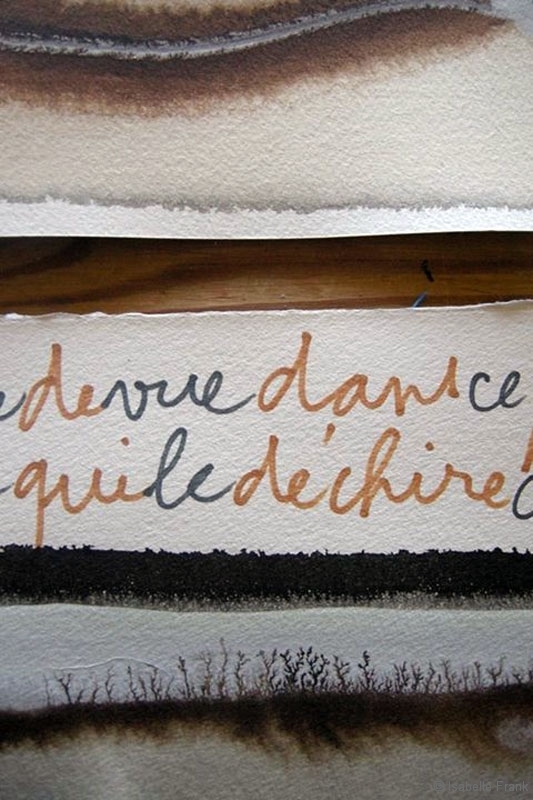 e de vue dans ce
qui le déchire
Isabelle Frank